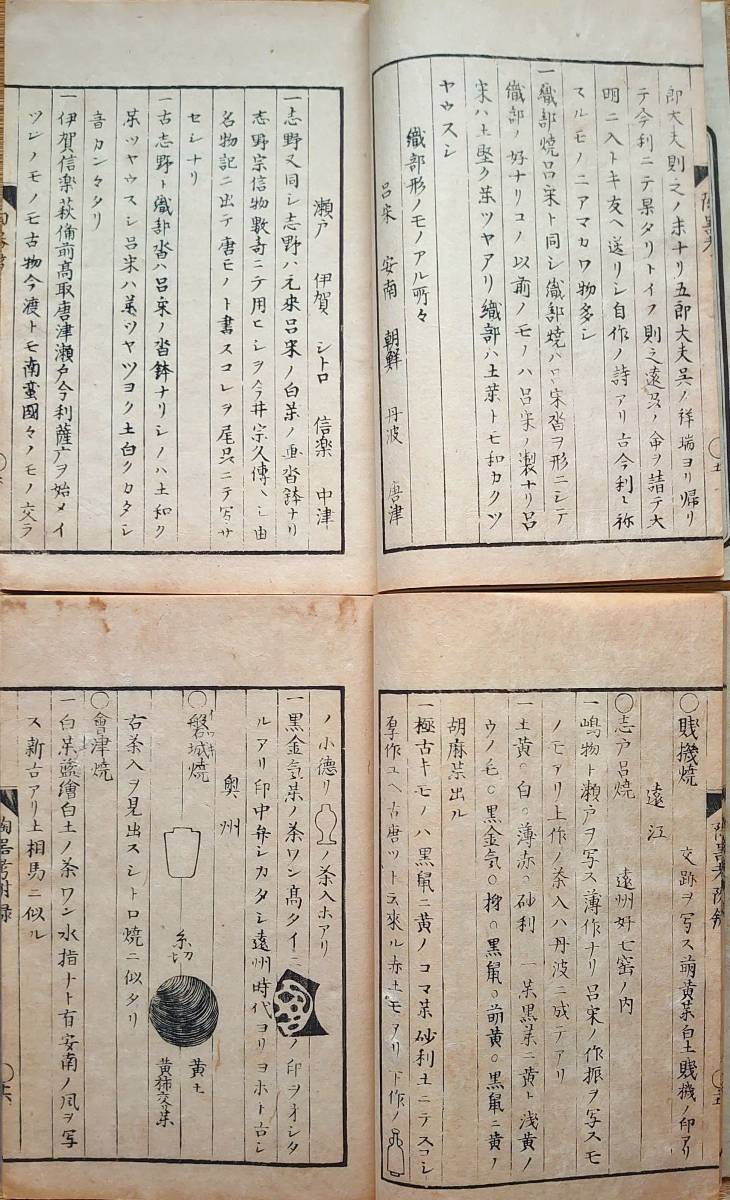 郎大夫則之ノ末ナリ五郎大夫呉ノ祥瑞ヨリ帰リ
テ今利ニテ果タリトイフ則之遠呉ノ命ヲ請テ大
明ニ入トキ友ヘ送リシ自作ノ詩アリ古今利ト称
スルモノニアマカワ物多シ
一織部焼呂宋ト同シ織部焼ハ呂宋沓ヲ形ニシテ
織部好ナリコノ以前ノモノハ呂宋ノ製ナリ呂
宋ハ土堅ク茶ツヤアリ織部ハ土茶トモ和カクツ
ヤウスシ
織部形ノモノアル所々
呂宋 安南 朝鮮 丹波 唐津
瀬戸 伊賀 シトロ 信楽 中津
一志野又同シ志野ハ元來呂宋ノ白茶ノ沓鉢ナリ
志野宗信物數奇ニテ用ヒシヲ今井宗久傳ヘシ由
名物記ニ出テ唐モノト書スコレヲ尾呉ニテ写サ
セシナリ
一古志野ト織部沓ハ呂宋ノ沓鉢ナリシノハ土和ク
茶ツヤウスシ呂宋ハ茶ツヤツヨク土白クカタシ
音カンマタリ
一伊賀信楽萩備前髙取唐津瀬戸今利薩广ヲ始メイ
ツレノモノモ古物今渡トモ南蛮國々ノモノ交ラ
陶器考
〇賤機焼 交跡ヲ写ス萠黄茶白土賤機ノ印アリ
遠江
〇志戸呂焼 遠州好七窑ノ内
一嶋物ト瀬戸ヲ写ス薄作ナリ呂宋ノ作振ヲ写スモ
ノモアリ上作ノ茶入ハ丹波ニ成テアリ
一土黄〇白〇薄赤〇砂利 一茶黒茶ニ黄ト浅黄ノ
ウノモ〇黒金気〇柿〇黒鼠〇萠黄〇黒鼠ニ黄ノ
胡麻茶出ル
一極古キモノハ黒鼠ニ黄ノコマ茶砂利土ニテスコシ
厚作ユヘ古唐ツト云來ル赤土モアリ下作ノ
ノ小德リノ茶入ホアリ
一黒金気茶ノ茶ワン髙タイニノ印ヲオシタ
ルアリ印中弁シカタシ遠州時代ヨリヨホト古シ
奥州
〇磐城焼
糸切 黄土
黄柿交茶
右茶入ヲ見出スシトロ焼ニ似タリ
〇會津焼
一白茶藍繪白土ノ茶ワン水指ナト有安南ノ風ヲ写
ス新古アリ土相馬ニ似ル
陶器考附録